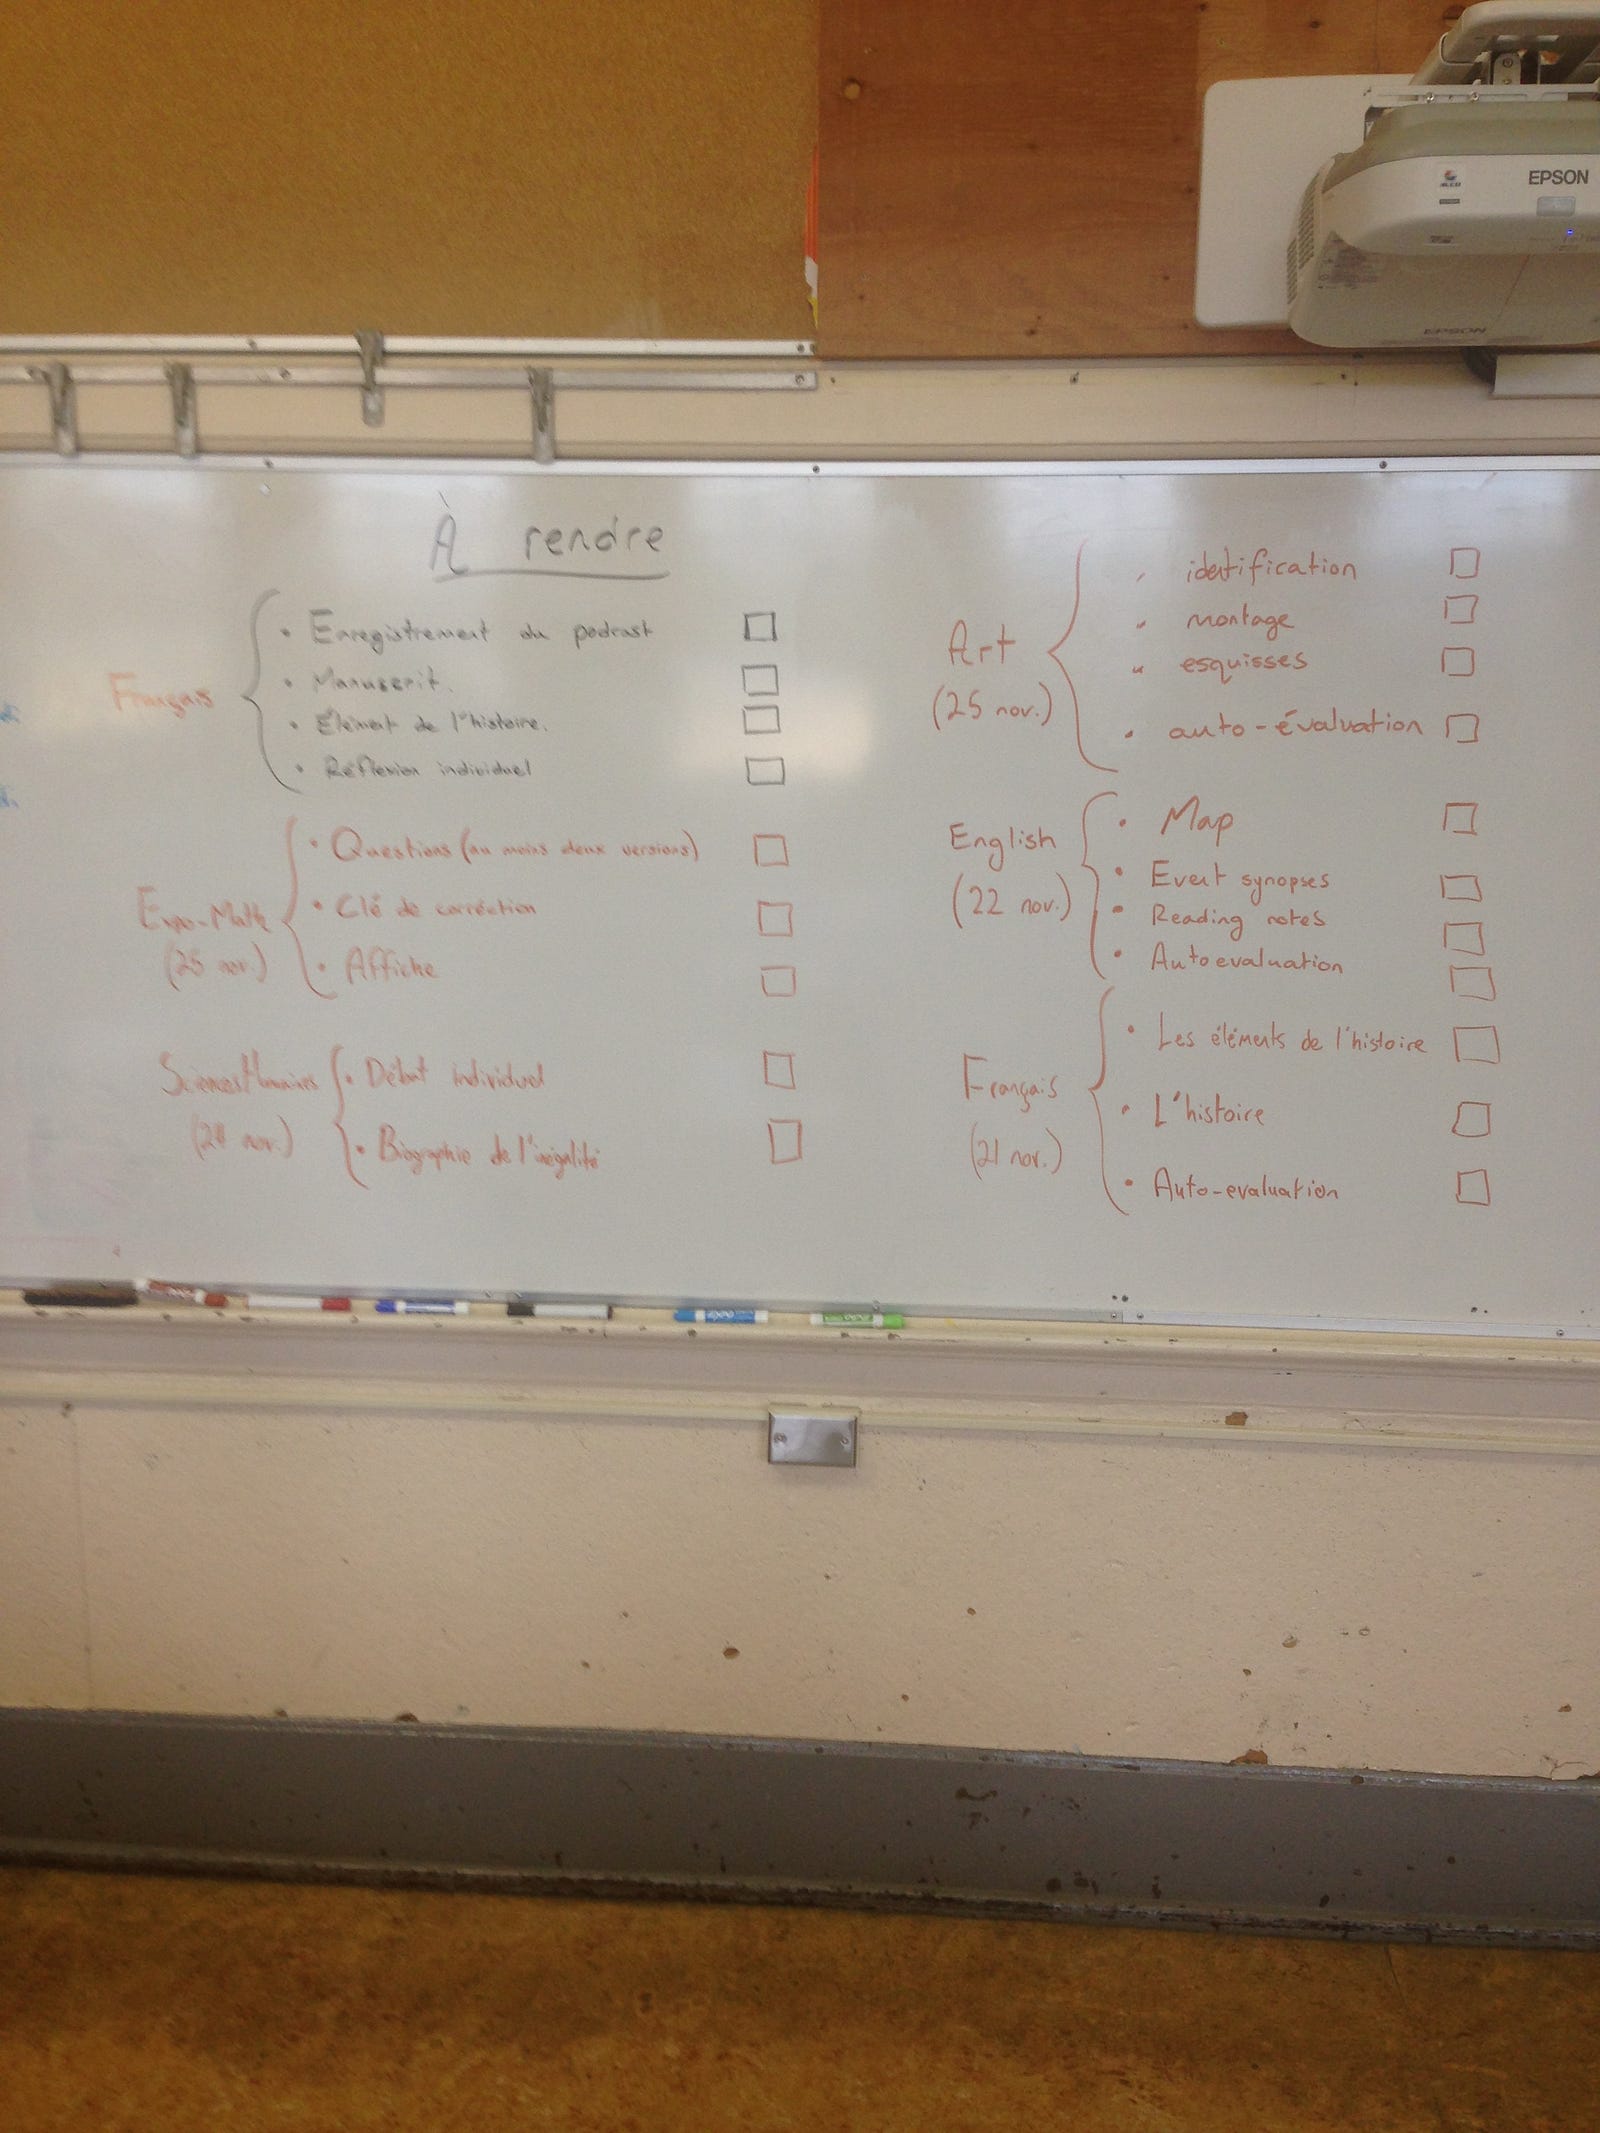 EPSON
EPSON
À rendre
Français
• Enregistrement du podcast
• Manuscrit.
• Élément de l'histoire.
• Réflexion individuel
Expo-Math
(25 nov.)
• Questions (au moins deux versions)
• Clé de corréction
• Affiche
Sciences Humaines
(24 nov.)
• Débat individuel
• Biographie de l'inégalité
Art
(25 nov.)
• identification
• montage
• esquisses
• auto-évaluation
English
(22 nov.)
• Map
• Event synopses
• Reading notes
• Autoevaluation
Français
(21 nov.)
• Les éléments de l'histoire
• L'histoire
• Auto-evaluation